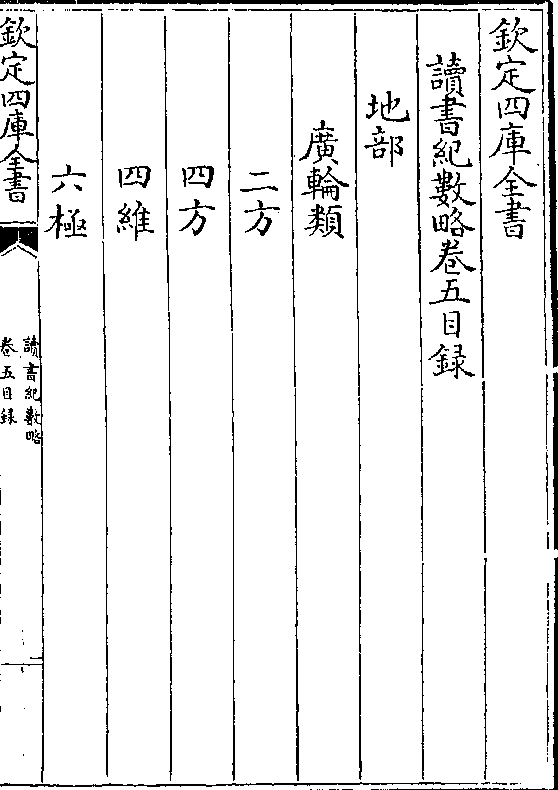 欽定四庫全書
讀書紀數略卷五目録
地部
廣輪類
二方
四方
四維
六極
欽定四庫全書
讀書紀數略
卷五目録